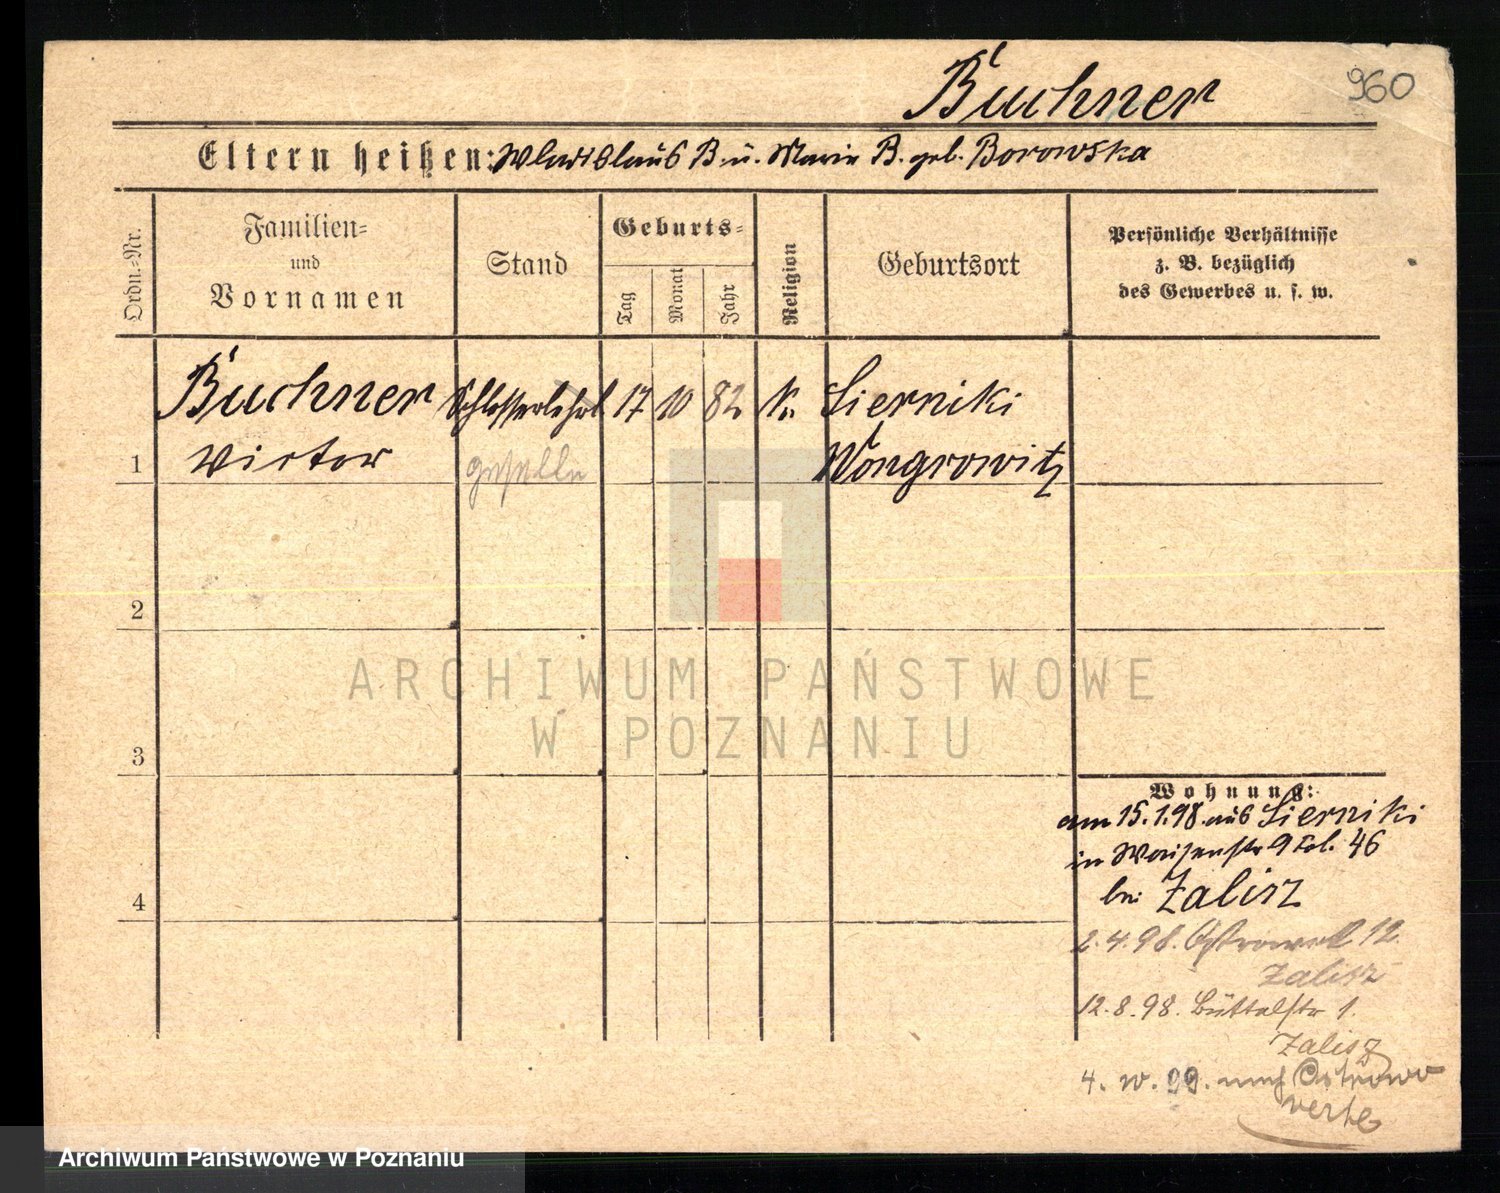 Buchner
960
Eltern heißen: Wladislaus B. u. Marie B. geb. Borowska
Ordn.-Nr.
Familien-
und
Vornamen
Stand
Geburts-
Tag
Monat
Jahr
Religion
Geburtsort
Persönliche Verhältnisse
z. B. bezüglich
des Gewerbes u. s. w.
1
Buchner
Victor
Schlosserlehrl
geselle
17
10
82
k.
Sierniki
Wongrowitz
2
3
4
Wohnung:
am 15.1.98 aus Sierniki
in Waisenstr 9 Fol. 46
bei Zalisz
2.4.98. 12
Zalisz
12.8.98. Büttelstr 1.
Zalisz
4. 99. nach Ostrowo
verte
ARCHIWUM PAŃSTWOWE
W POZNANIU
Archiwum Państwowe w Poznaniu